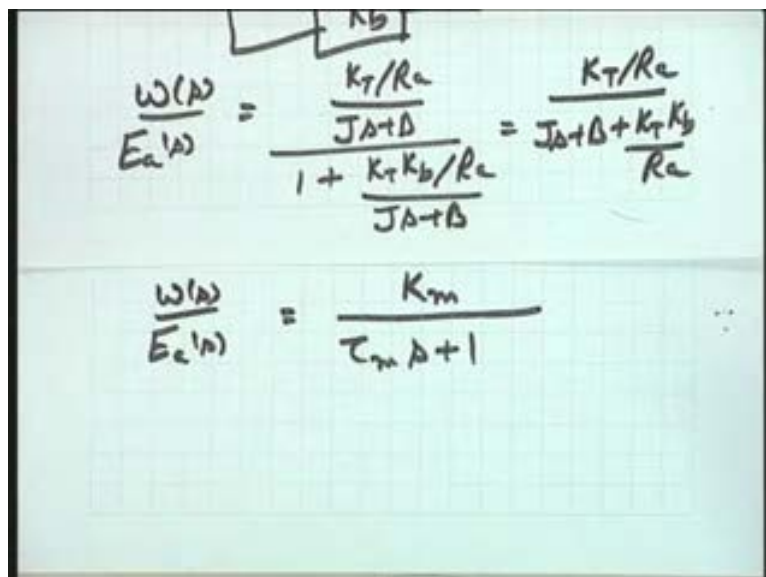 Kb
ω(s)/Ea(s) = (KT/Ra / Js+B) / (1 + KT Kb/Ra / Js+B) = (KT/Ra) / (Js+B + KT Kb/Ra)
ω(s)/Ea(s) = Km / (τm s + 1)